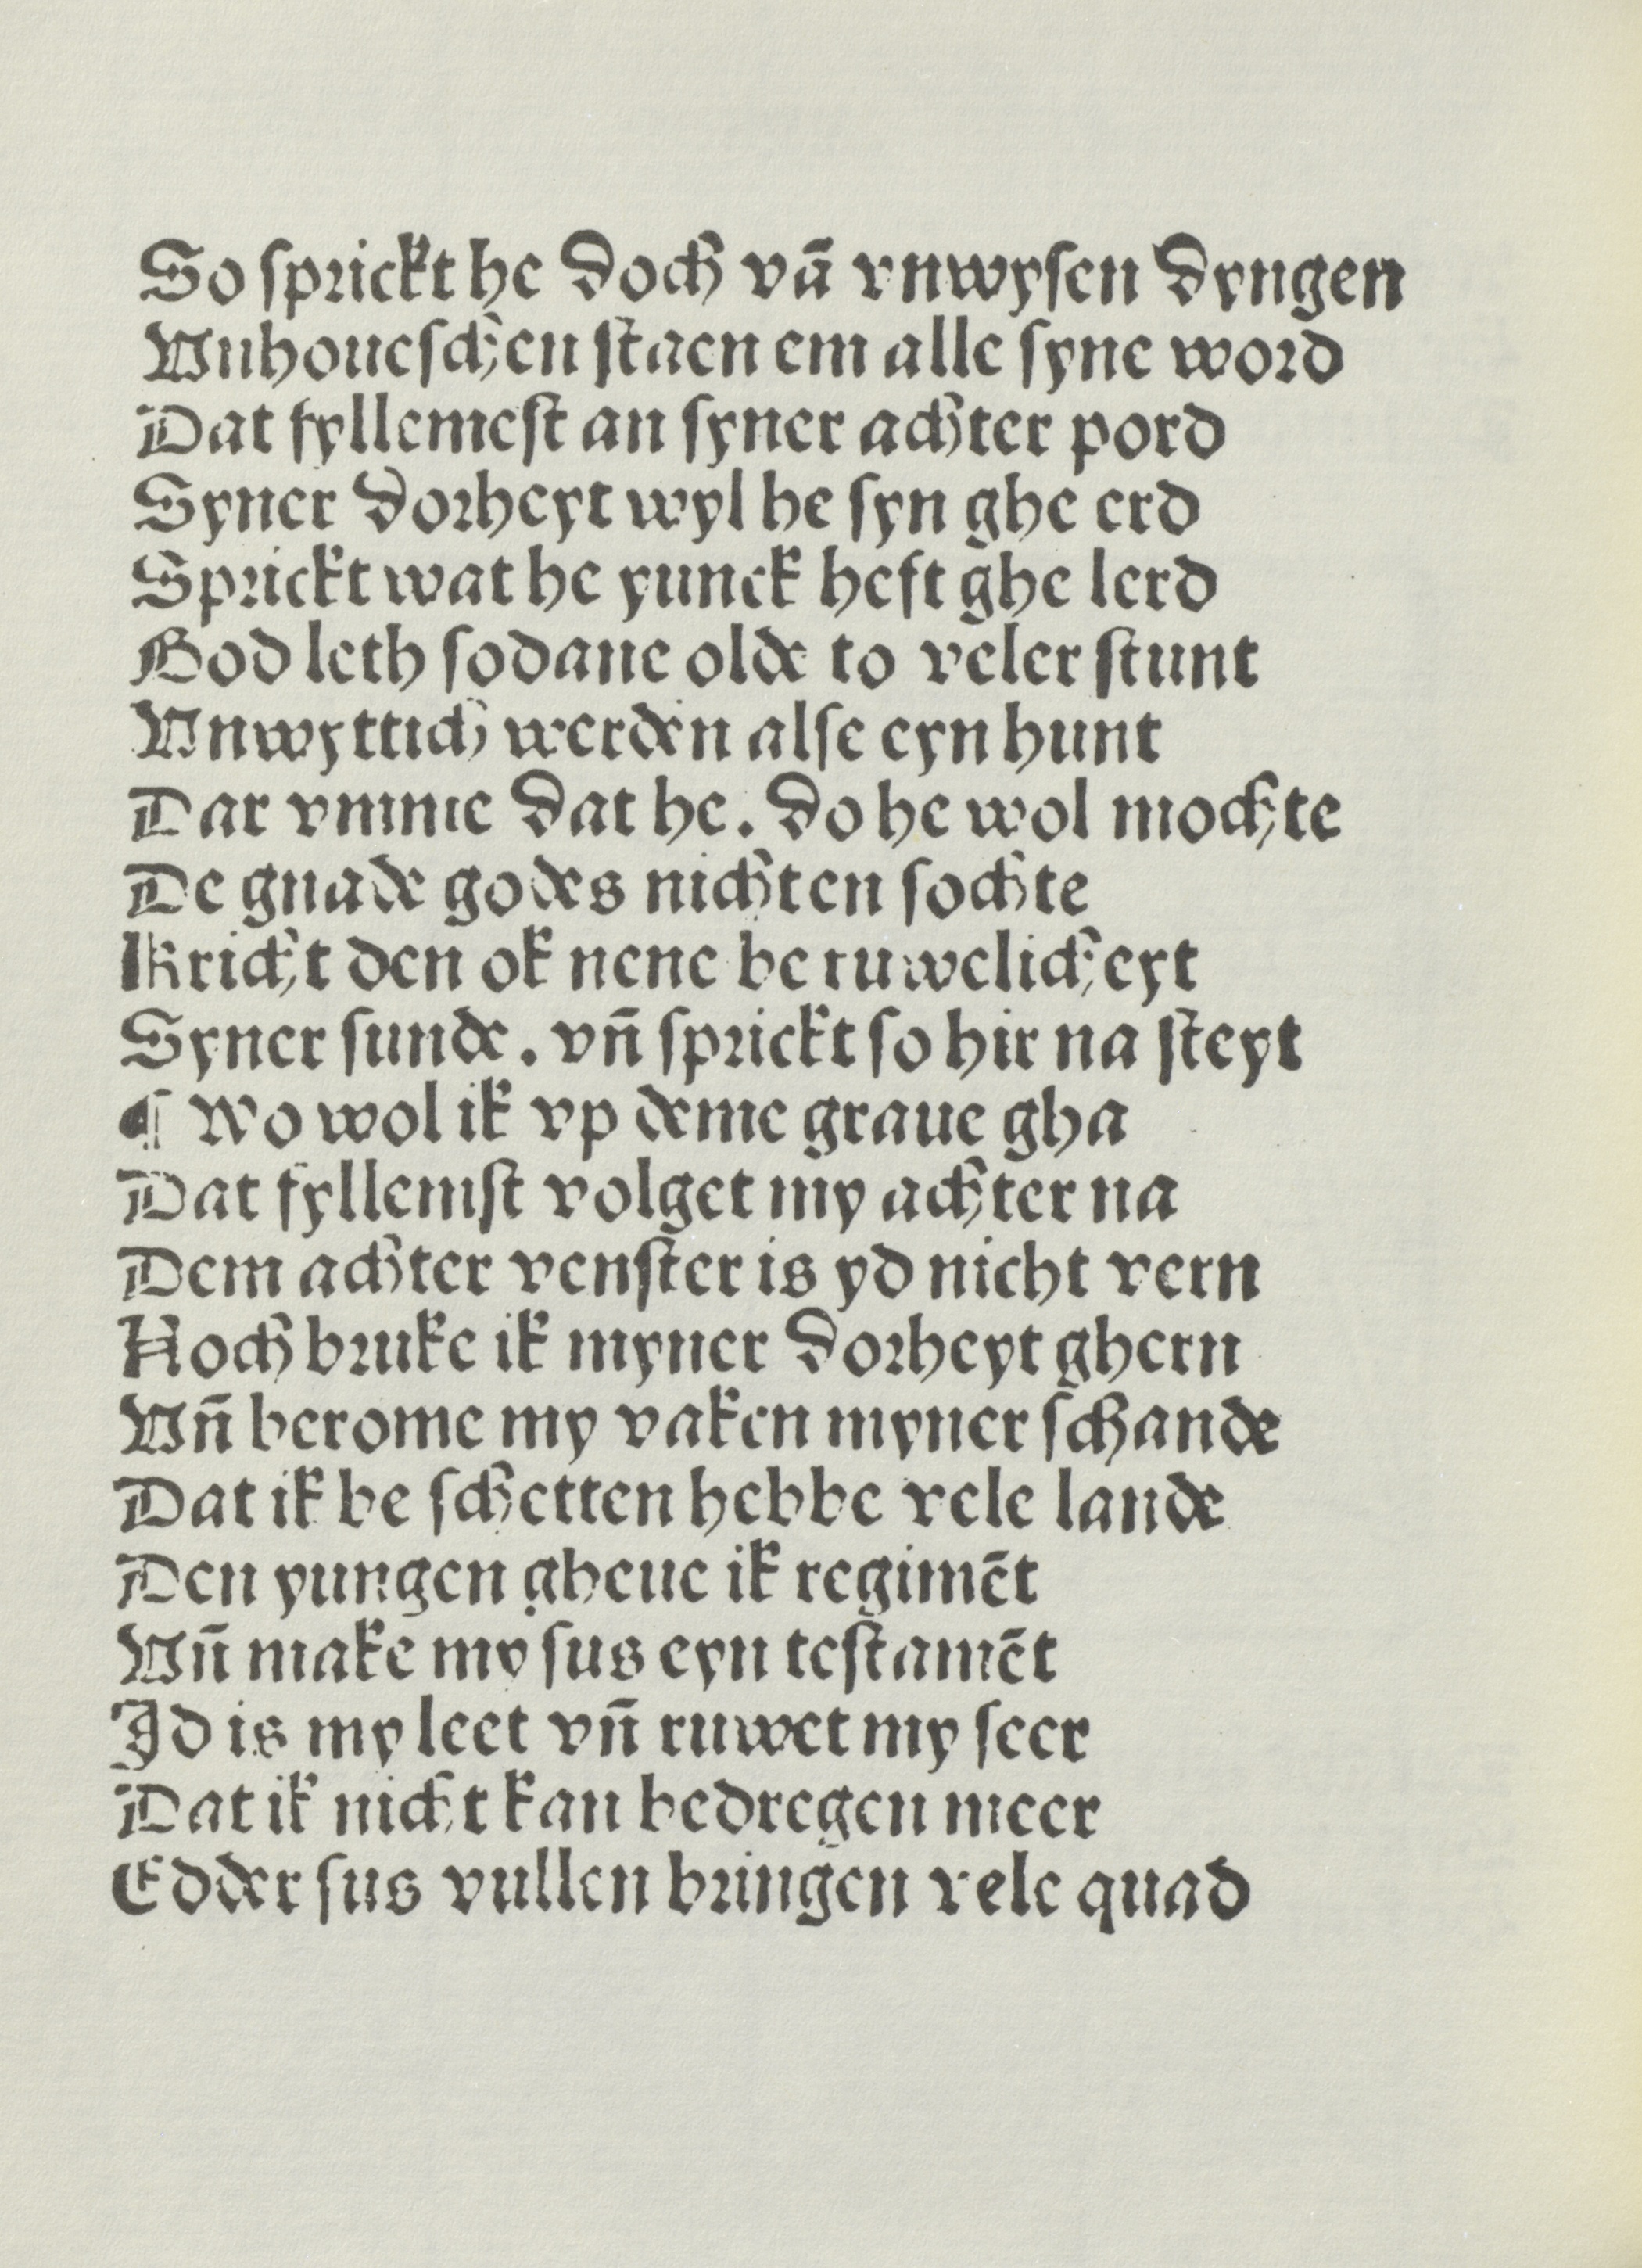 So sprickt he doch vā vnwysen dyngen
Vnhoueschen staen em alle syne word
Dat fyllemest an syner achter pord
Syner dorheyt wyl he syn ghe erd
Sprickt wat he yunck heft ghe lerd
God leth sodane olde to veler stunt
Vnwyttich werden alse eyn hunt
Dar vmme dat he. do he wol mochte
De gnade godes nichten sochte
Kricht den ok nene be ruwelicheyt
Syner sunde. vn̄ sprickt so hir na steyt
¶ Wo wol ik vp deme graue gha
Dat fyllemst volget my achter na
Dem achter venster is yd nicht vern
Noch bruke ik myner dorheyt ghern
Vn̄ berome my vaken myner schande
Dat ik be schetten hebbe vele lande
Den yungen gheue ik regimēt
Vn̄ make my sus eyn testamēt
Id is my leet vn̄ ruwet my seer
Dat ik nicht kan bedregen meer
Edder sus vullen bringen vele quad